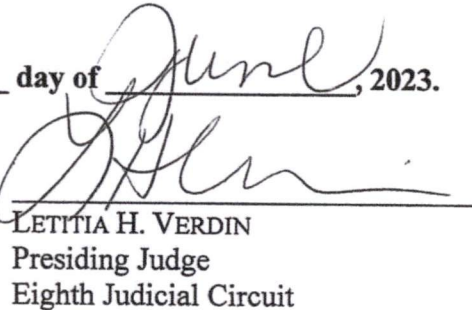 day of June, 2023.
LETITIA H. VERDIN
Presiding Judge
Eighth Judicial Circuit